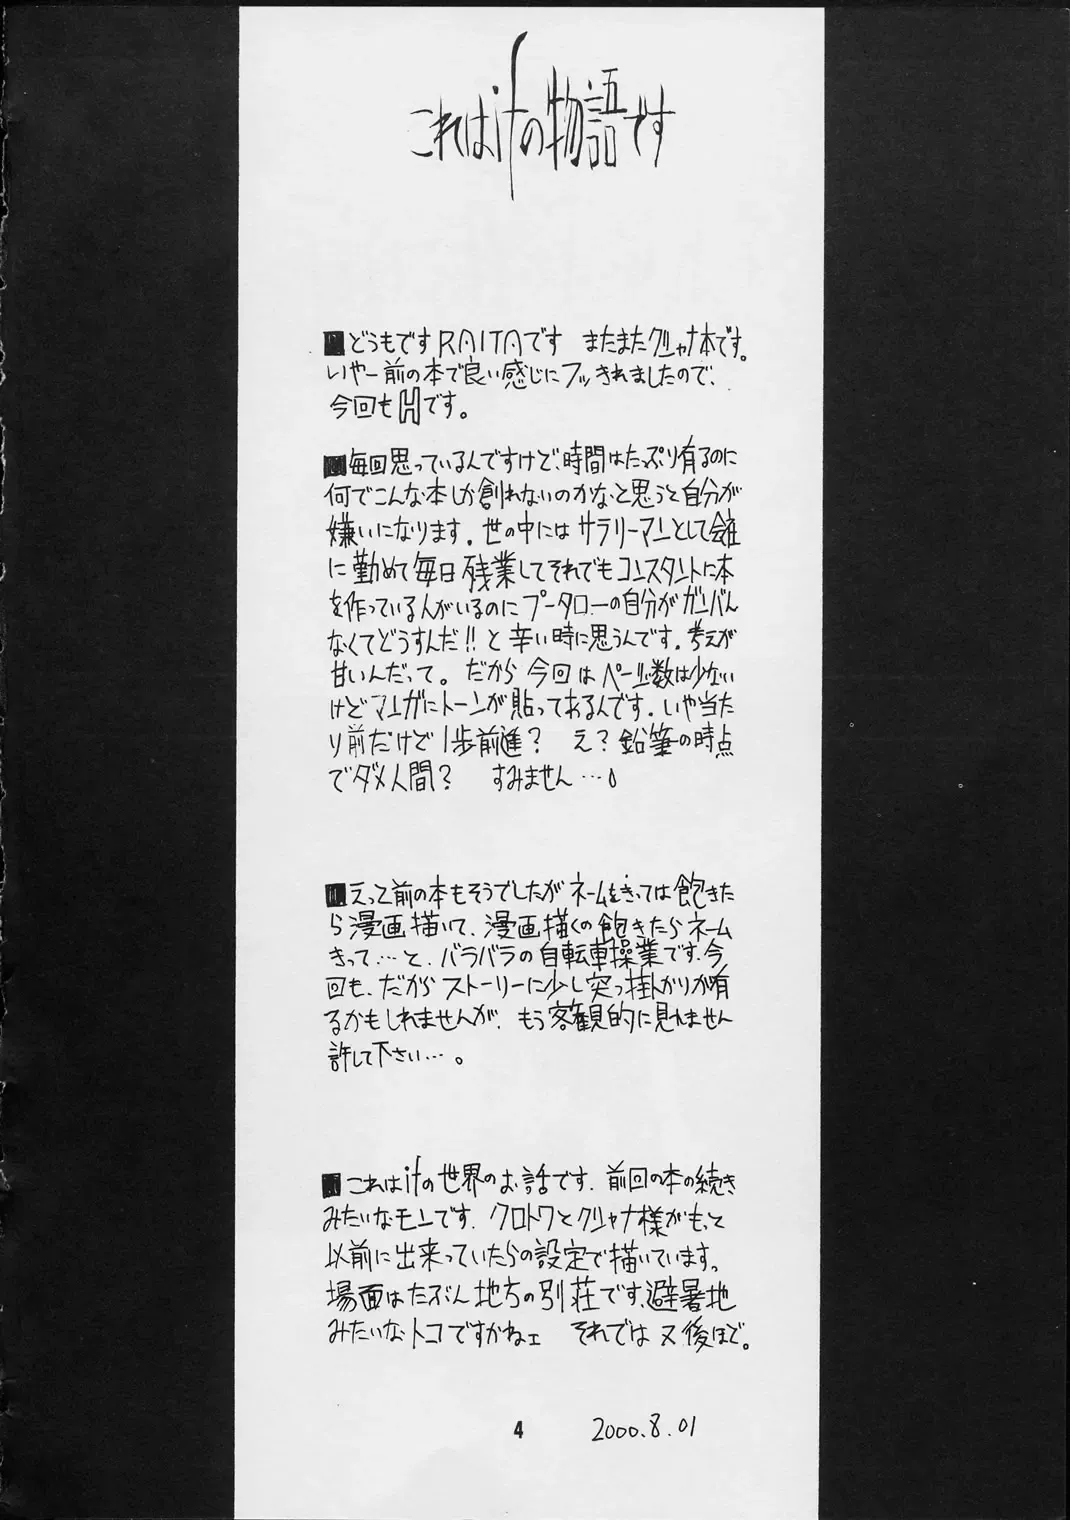 これはifの物語です
■どうもですRAITAです またまたクシャナ本です。
いやー前の本で良い感じにフッきれましたので、
今回もHです。
■毎回思っているんですけど、時間はたっぷり有るのに
何でこんな本しか創れないのかなと思うと自分が
嫌いになります。世の中にはサラリーマンとして会社
に勤めて毎日残業してそれでもコンスタントに本
を作っている人がいるのにプータローの自分がガンバん
なくてどうすんだ!!と辛い時に思うんです。考えが
甘いんだって。だから今回はページ数は少ない
けどマンガにトーンが貼ってあるんです。いや当た
り前だけど1歩前進? え?鉛筆の時点
でダメ人間? すみません…。
■えって前の本もそうでしたがネームをきっては飽きた
ら漫画描いて、漫画描くの飽きたらネーム
きって…と、バラバラの自転車操業です。今
回も、だからストーリーに少し突っ掛かりが有
るかもしれませんが、もう客観的に見れません
許して下さい…。
■これはifの世界のお話です。前回の本の続き
みたいなモンです。クロトワとクシャナ様がもっと
以前に出来っていたらの設定で描いています。
場面はたぶん地方の別荘です、避暑地
みたいなトコですかねェ それでは又後ほど。
4 2000.8.01